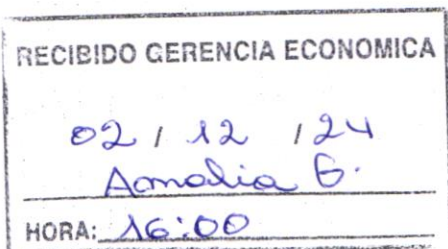 RECIBIDO GERENCIA ECONOMICA
02 / 12 / 24
Amalia G.
HORA: 16:00